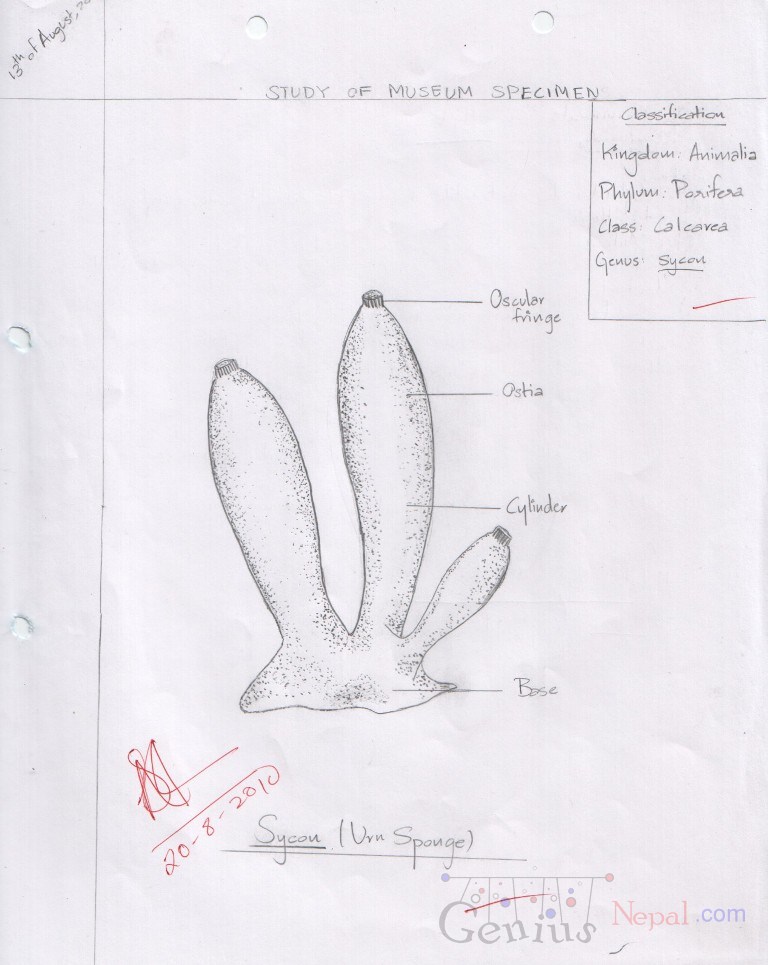 13th of August,
STUDY OF MUSEUM SPECIMEN
Classification
Kingdom: Animalia
Phylum: Porifera
Class: Calcarea
Genus: Sycon
Oscular
fringe
Ostia
Cylinder
Base
20-8-2010
Sycon (Urn Sponge)
Genius Nepal.com